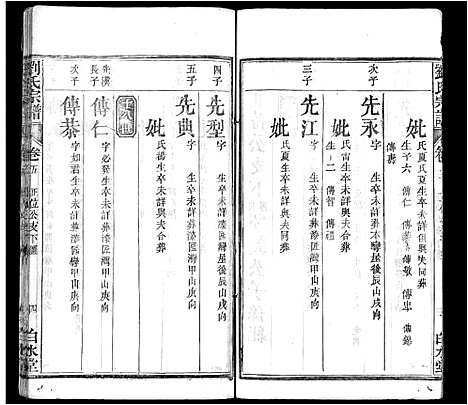 劉氏宗譜
妣 氏夏生卒未詳俱與夫同葬
生子六 傳仁
傳壽
次子
先永 字 生卒未詳葬本灣屋後辰山戌向
妣 氏雷生卒未詳與夫合葬
生二 傳智 傳禮
三子
先江 字 生卒未詳葬
妣 氏夏生卒未詳與夫同葬
白水堂
四子
先型 字 生卒未詳葬漆匠灣屋後辰山戌向
五子
先典 字 生卒未詳葬漆匠灣甲山庚向
妣 氏諶生卒未詳與夫合葬
十八世
先漢
長子
傳仁 字必發生卒未詳葬漆匠灣甲山庚向
次子
傳恭 字如君生卒未詳葬漆匠灣甲山庚向
劉氏宗譜
卷五
正位公支下
四
白水堂